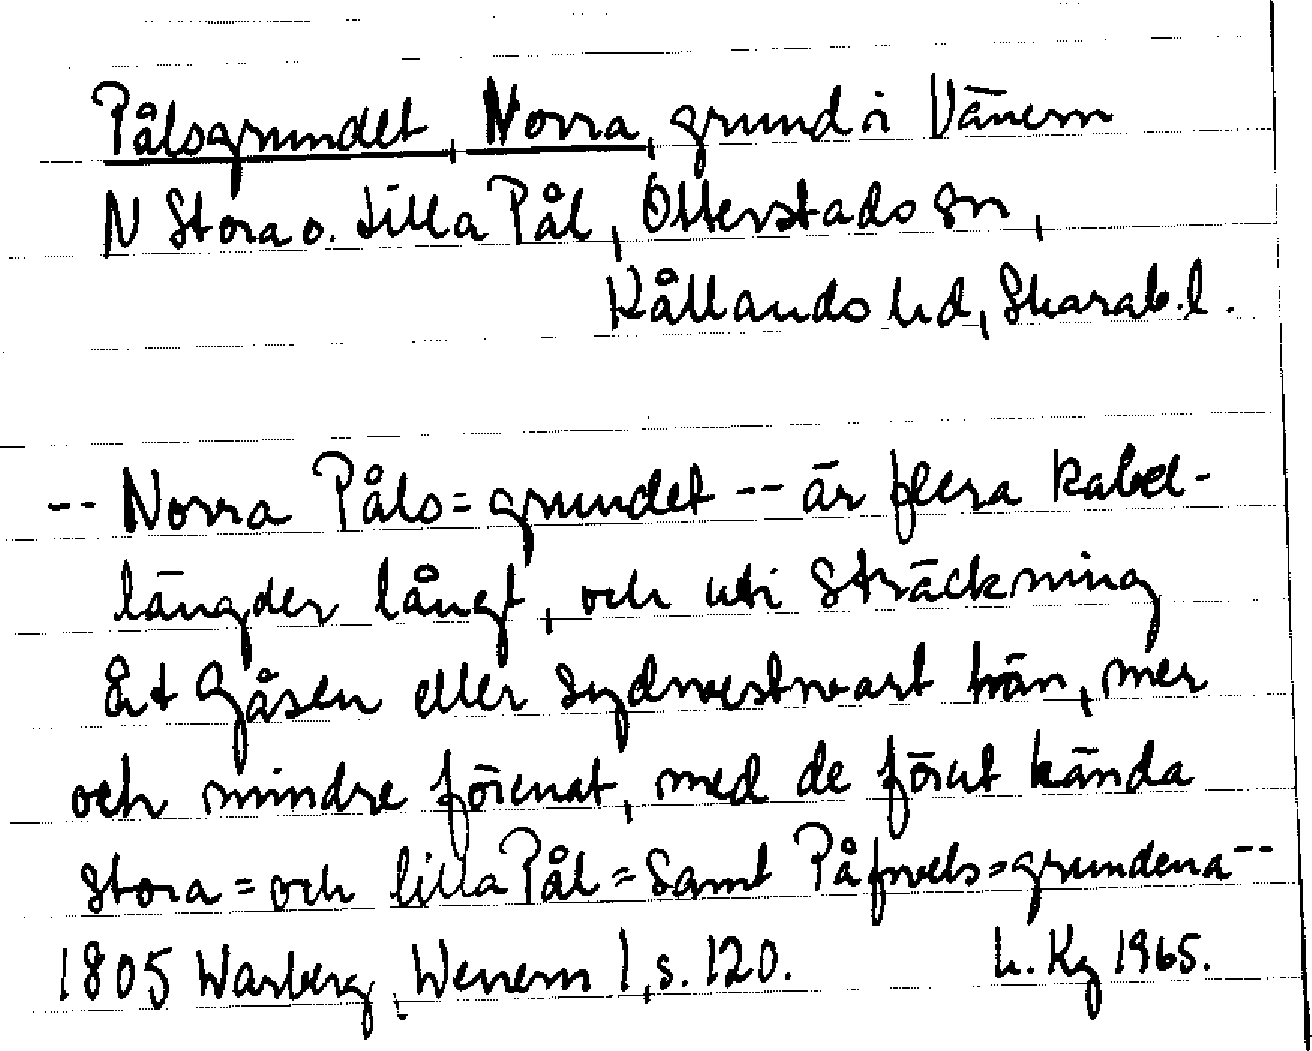 Pålsgrundet, Norra, grund i Vänern
N Stora o. Lilla Pål, Otterstads sn,
Kållands hd, Skarab.l.
-- Norra Påls=grundet -- är flera kabel-
längder långt, och uti Sträckning
åt Gåsen eller Sydwestwart hän, mer
och mindre förenat, med de förut kända
Stora= och lilla Pål= Samt Påfwels=grundena --
1805 Warberg, Wenern 1, s. 120. L. Kg 1965.